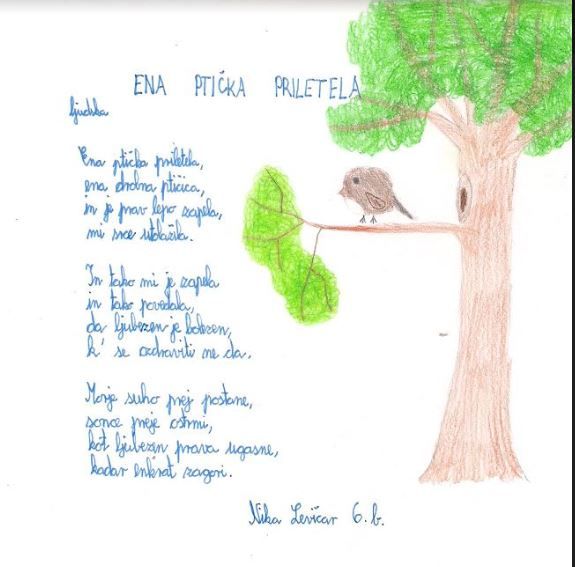 ENA PTIČKA PRILETELA
ljudska
Ena ptička priletela,
ena drobna ptičica,
in je prav lepo zapela,
mi srce utolažila.
In tako mi je zapela
in tako povedala,
da ljubezen je bolezen,
k' se ozdraviti ne da.
Morje suho prej postane,
sonce preje otrmi,
kot ljubezen prava ugasne,
kadar enkrat zagori.
Nika Levičar 6. b.